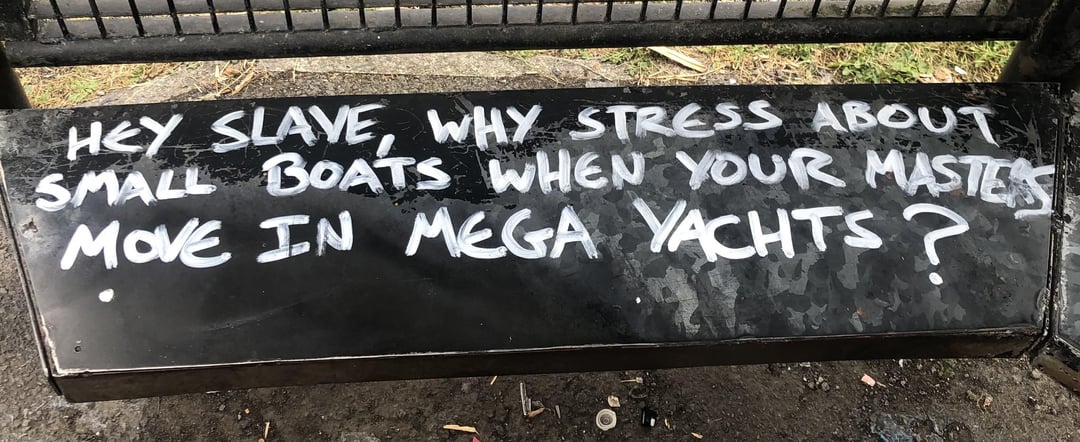 HEY SLAVE, WHY STRESS ABOUT
SMALL BOATS WHEN YOUR MASTERS
MOVE IN MEGA YACHTS?